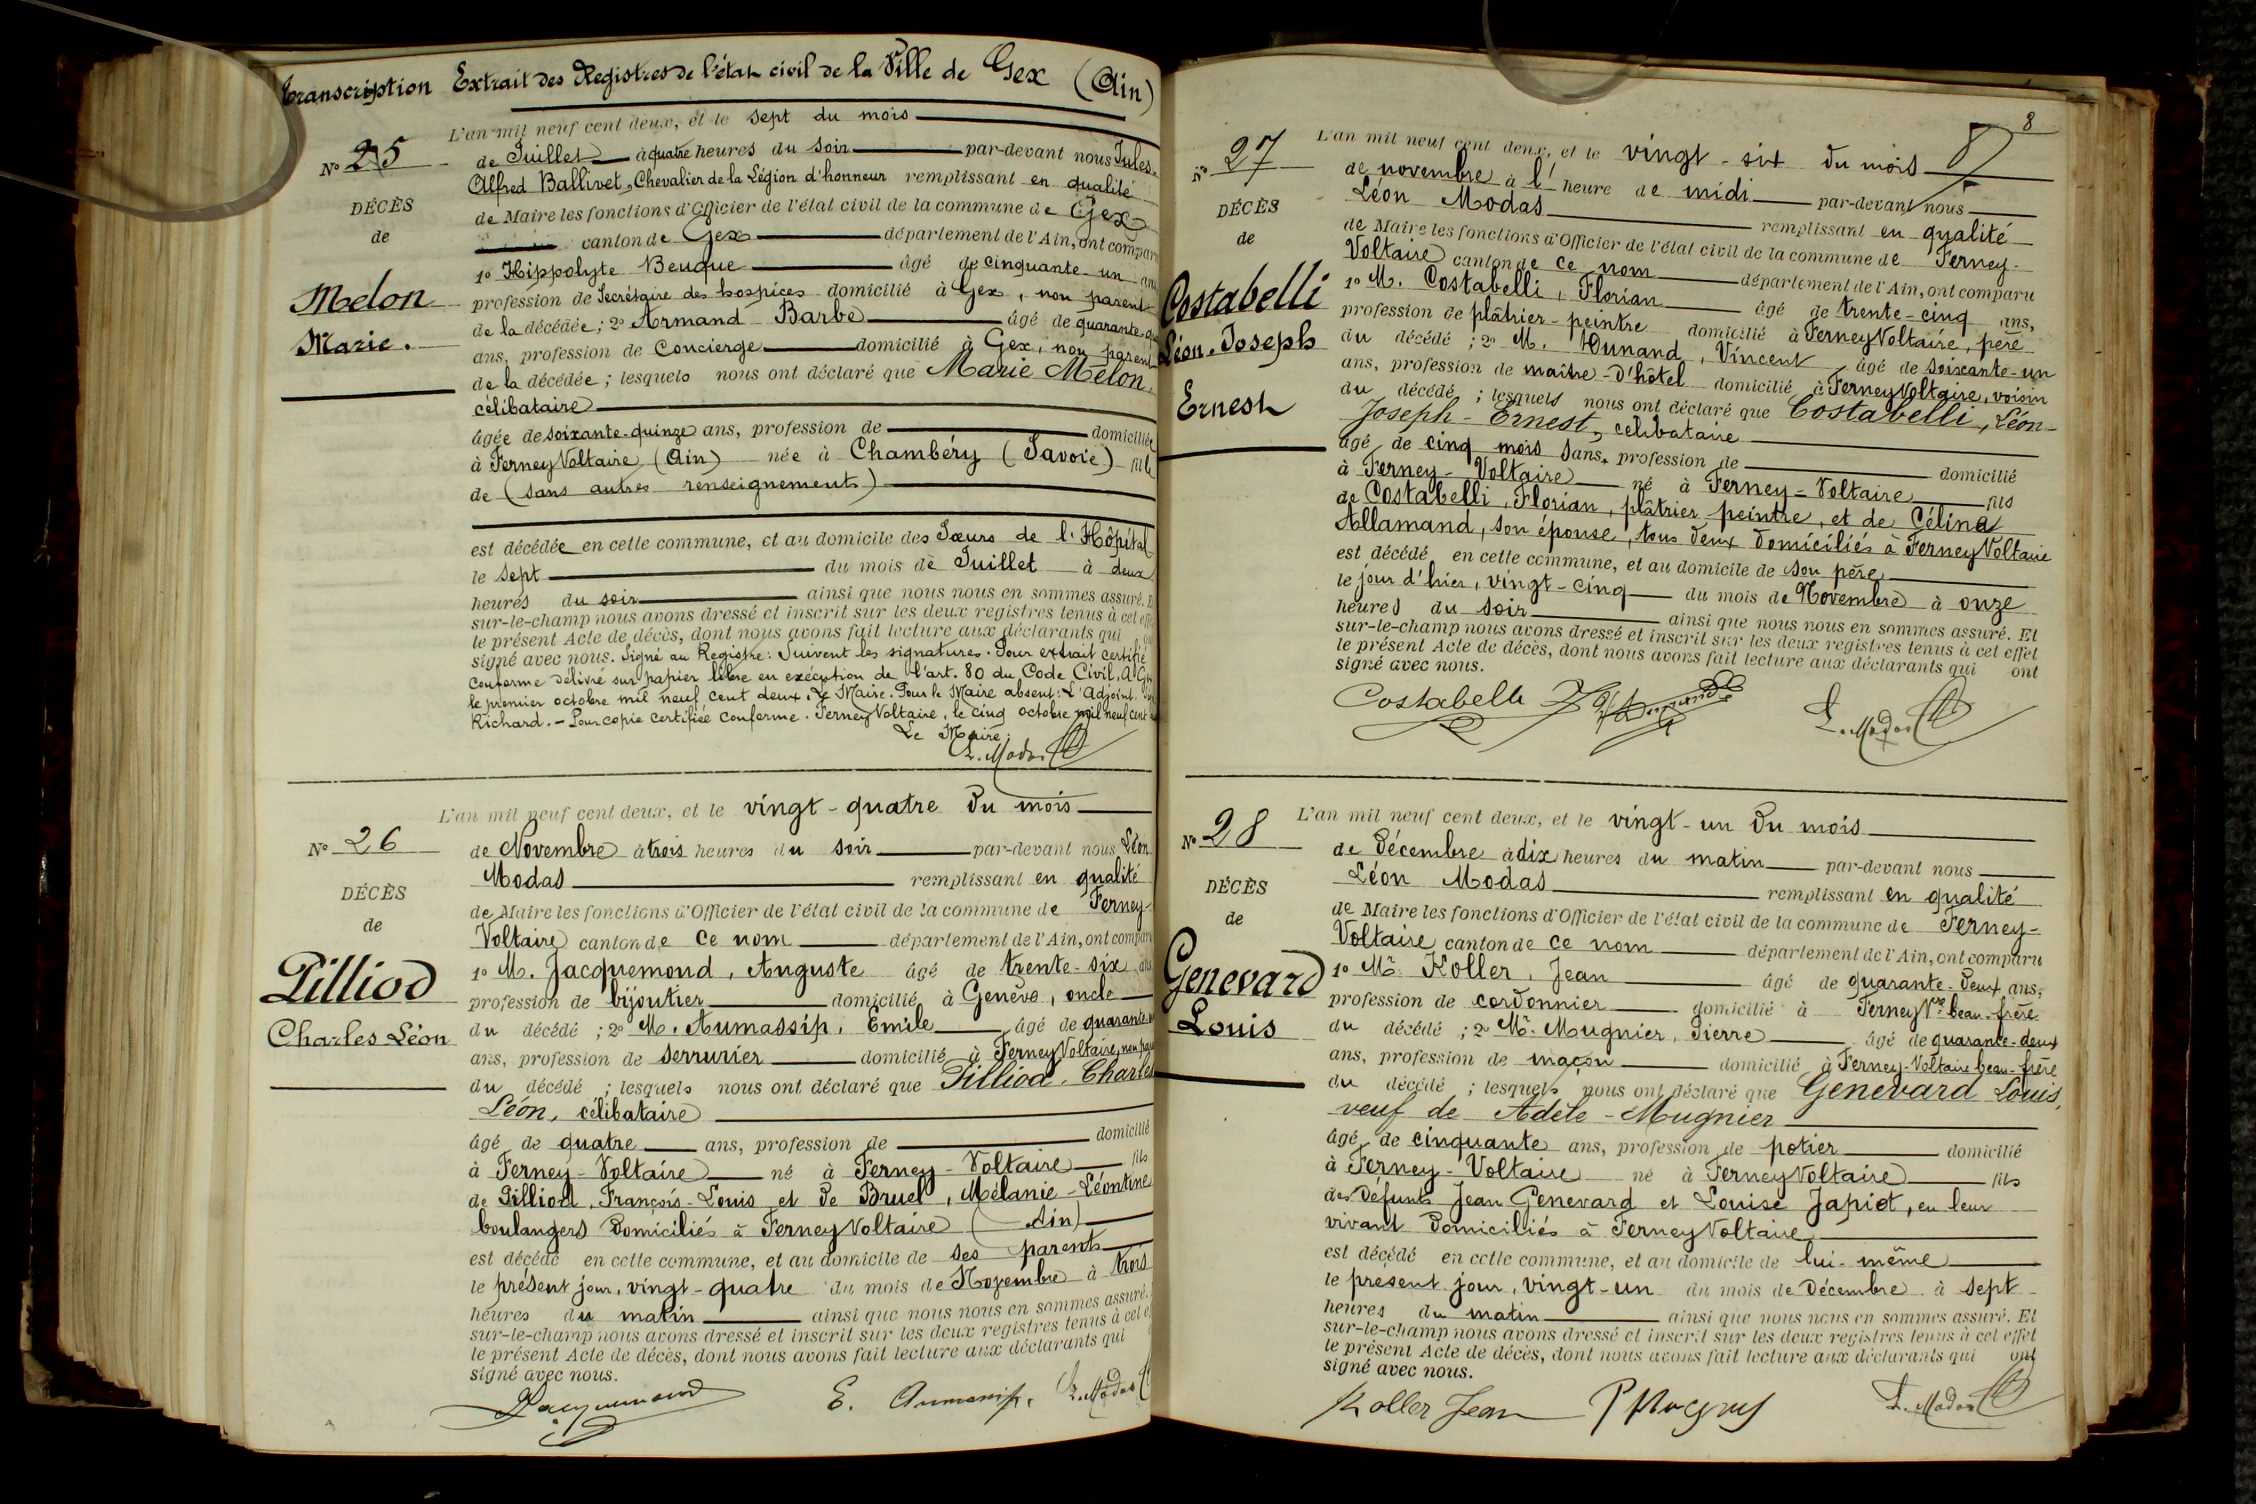 Transcription Extrait des Registres de l'état civil de la Ville de Gex (Ain)
L'an mil neuf cent deux, et le sept du mois
N° 25
de Juillet à quatre heures du soir par-devant nous Jules-
Alfred Ballivet, Chevalier de la Légion d'honneur remplissant en qualité
DÉCÈS
de Maire les fonctions d'Officier de l'état civil de la commune de Gex
de
canton de Gex département de l'Ain, ont comparu
1° Hippolyte Beuque âgé de cinquante-un ans
Melon
profession de Secrétaire des hospices domicilié à Gex, non parent
de la décédée ; 2° Armand Barbe âgé de quarante-
Marie.
ans, profession de Concierge domicilié à Gex, non parent
de la décédée ; lesquels nous ont déclaré que Marie Melon,
célibataire
âgée de soixante-quinze ans, profession de domiciliée
à Ferney Voltaire (Ain) née à Chambéry (Savoie) fille
de (sans autres renseignements)
est décédée en cette commune, et au domicile des Sœurs de l'Hôpital
le sept du mois de Juillet à deux
heures du soir ainsi que nous nous en sommes assuré. Et
sur-le-champ nous avons dressé et inscrit sur les deux registres tenus à cet effet
le présent Acte de décès, dont nous avons fait lecture aux déclarants qui ont
signé avec nous. Signé au Registre : Suivent les signatures. Pour extrait certifié
conforme délivré sur papier libre en exécution de l'art. 80 du Code Civil. A Gex
le premier octobre mil neuf cent deux, Le Maire. Pour le Maire absent : L'Adjoint.
Richard. - Pour copie certifiée conforme. Ferney Voltaire, le cinq octobre mil neuf cent
Le Maire:
L. Modas
L'an mil neuf cent deux, et le vingt-quatre du mois
N° 26
de Novembre à trois heures du soir par-devant nous Léon
Modas remplissant en qualité
DÉCÈS
de Maire les fonctions d'Officier de l'état civil de la commune de Ferney-
de
Voltaire canton de ce nom département de l'Ain, ont comparu
1° M. Jacquemond, Auguste âgé de trente-six ans
Pilliod
profession de bijoutier domicilié à Genève, oncle
Charles Léon
du décédé ; 2° M. Aumassip, Emile âgé de quarante
ans, profession de serrurier domicilié à Ferney Voltaire, non parent
du décédé ; lesquels nous ont déclaré que Pilliod, Charles
Léon, célibataire
âgé de quatre ans, profession de domicilié
à Ferney-Voltaire né à Ferney-Voltaire fils
de Pilliod, François-Louis et de Bruel, Mélanie-Léontine
boulangers domiciliés à Ferney Voltaire (Ain)
est décédé en cette commune, et au domicile de ses parents
le présent jour, vingt-quatre du mois de Novembre à trois
heures du matin ainsi que nous nous en sommes assuré.
sur-le-champ nous avons dressé et inscrit sur les deux registres tenus à cet
le présent Acte de décès, dont nous avons fait lecture aux déclarants qui
signé avec nous.
Jacquemond E. Aumassip. L. Modas
8
L'an mil neuf cent deux, et le vingt-six du mois 8
N° 27
de novembre à l'heure de midi par-devant nous
Léon Modas remplissant en qualité
DÉCÈS
de Maire les fonctions d'Officier de l'état civil de la commune de Ferney-
de
Voltaire canton de ce nom département de l'Ain, ont comparu
1° M. Costabelli, Florian âgé de trente-cinq ans,
Costabelli
profession de plâtrier-peintre domicilié à Ferney Voltaire, père
Léon-Joseph
du décédé ; 2° M. Dunand, Vincent âgé de soixante-un
ans, profession de maître-d'hôtel domicilié à Ferney Voltaire, voisin
Ernest
du décédé ; lesquels nous ont déclaré que Costabelli, Léon-
Joseph-Ernest, célibataire
âgé de cinq mois sans, profession de domicilié
à Ferney-Voltaire né à Ferney-Voltaire fils
de Costabelli, Florian, plâtrier-peintre, et de Célina
Allamand, son épouse, tous deux domiciliés à Ferney Voltaire
est décédé en cette commune, et au domicile de son père
le jour d'hier, vingt-cinq du mois de Novembre à onze
heures du soir ainsi que nous nous en sommes assuré. Et
sur-le-champ nous avons dressé et inscrit sur les deux registres tenus à cet effet
le présent Acte de décès, dont nous avons fait lecture aux déclarants qui ont
signé avec nous.
Costabelli L. Modas
L'an mil neuf cent deux, et le vingt-un du mois
N° 28
de Décembre à dix heures du matin par-devant nous
Léon Modas remplissant en qualité
DÉCÈS
de Maire les fonctions d'Officier de l'état civil de la commune de Ferney-
de
Voltaire canton de ce nom département de l'Ain, ont comparu
1° Mr. Koller, Jean âgé de quarante-deux ans,
Genevard
profession de cordonnier domicilié à Ferney Vre beau-frère
Louis
du décédé ; 2° Mr. Mugnier, Pierre âgé de quarante-deux
ans, profession de maçon domicilié à Ferney-Voltaire beau-frère
du décédé ; lesquels nous ont déclaré que Genevard Louis,
veuf de Adèle-Mugnier
âgé de cinquante ans, profession de potier domicilié
à Ferney-Voltaire né à Ferney Voltaire fils
des défunts Jean Genevard et Louise Japiot, en leur
vivant domiciliés à Ferney Voltaire
est décédé en cette commune, et au domicile de lui-même
le présent jour, vingt-un du mois de Décembre à sept
heures du matin ainsi que nous nous en sommes assuré. Et
sur-le-champ nous avons dressé et inscrit sur les deux registres tenus à cet effet
le présent Acte de décès, dont nous avons fait lecture aux déclarants qui ont
signé avec nous.
Koller Jean L. Modas